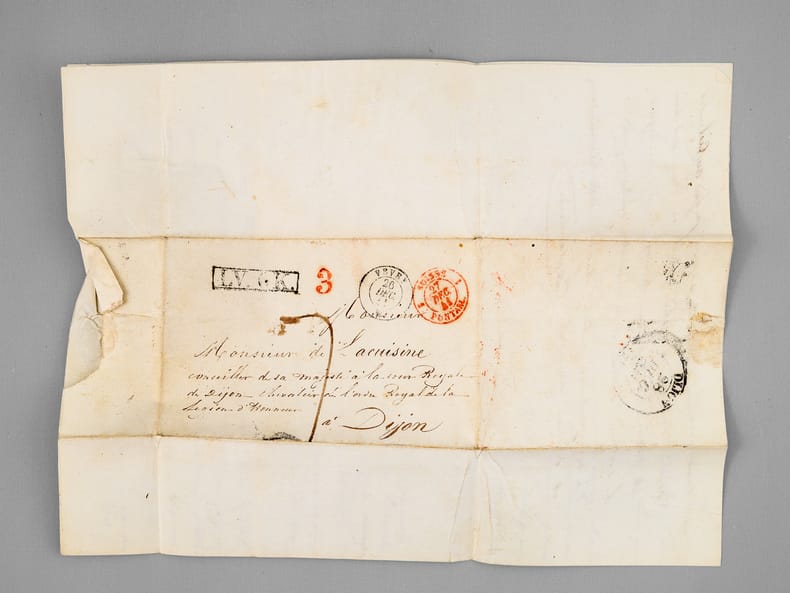 L.V.G.K.
3
VEVEY
26
DEC
SUISSE
27
DEC
41
PONTARL
Monsieur
Monsieur de Lacuisine
conseiller de sa majesté à la cour Royale
de Dijon chevalier de l'ordre Royal de la
Légion d'honneur
à Dijon
7
DIJON